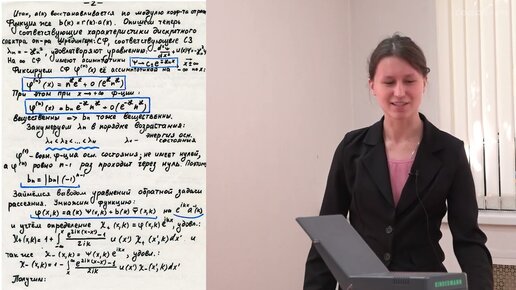 - 2 -
Итак, a(k) восстанавливается по модулю коэф-та отраж.
Функция же b(k) = r(k)·a(k). Опишем теперь
соответствующие характеристики дискретного
спектра оп-ра Шредингера: СФ, соответствующие СЗ
λn = -ϰn², удовлетворяют уравнению:
На ∞ СФ имеют асимптотики
Фиксируем СФ φ⁽ⁿ⁾(x) её асимптотикой на -∞ по x:
φ⁽ⁿ⁾(x) = e + o(e
При этом при x → +∞ ф-ции
φ⁽ⁿ⁾(x) = bn e + o(e
вещественны => bn тоже вещественны.
Занумеруем λn в порядке возрастания:
λ1 < λ2 < ... < λn λ1 - энергия осн. состояния
φ⁽¹⁾ - ф-ция осн. состояния, не имеет нулей,
а φ⁽ⁿ⁾ ровно n-1 раз проходит через нуль. Поэтому
bn = |bn| (-1)ⁿ⁻¹
Займёмся выводом уравнений обратной задачи
рассеяния. Умножим функцию:
φ(x,k) = a(k) Ψ(x,k) + b(k) Ψ̄(x,k) на
и учтём определение χ₊(x,k) = φ(x,k) e^{ikx}, удовл.:
χ₊(x,k) = 1 + ∫ e^{2ik(x-x')} - 1 / 2ik u(x') χ₊(x',k) dx' и
так же χ₋(x,k) = Ψ(x,k) e^{ikx}, удовл.:
χ₋(x,k) = 1 - ∫ e^{2ik(x-x')} - 1 / 2ik u(x') χ₋(x',k) dx'
Получим:
KINDERMANN